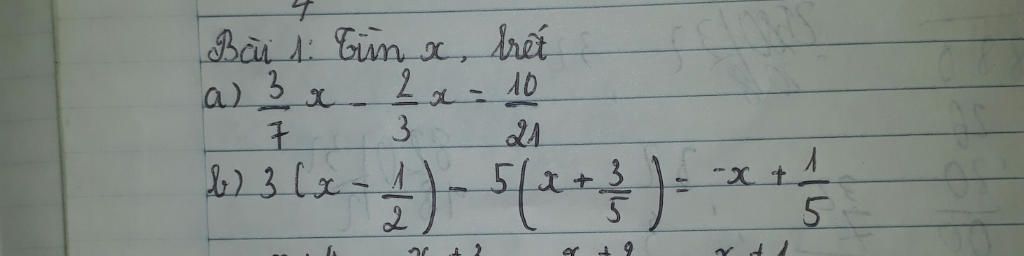 Bài 1: Tìm x, biết
a) 3/7 x - 2/3 x = 10/21
b) 3(x - 1/2) - 5(x + 3/5) = -x + 1/5